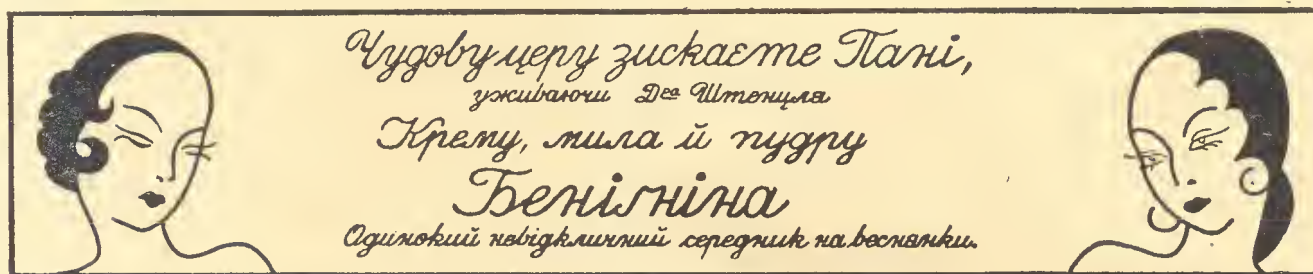 Чудову церу зискаєте Пані,
уживаючи Дра Штенцля
Крему, мила й пудру
Бенігніна
Одинокий невідкличний середник на веснянки.